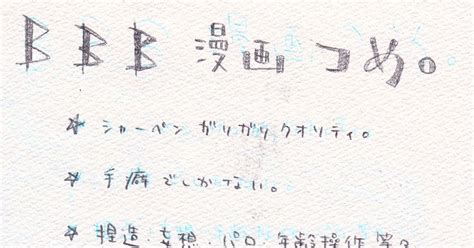 BBB 漫画つめ。
☆ シャーペンガリガリクオリティ。
☆ 手癖でしかない。
☆ 捏造・妄想・パロ・年齢操作 等々